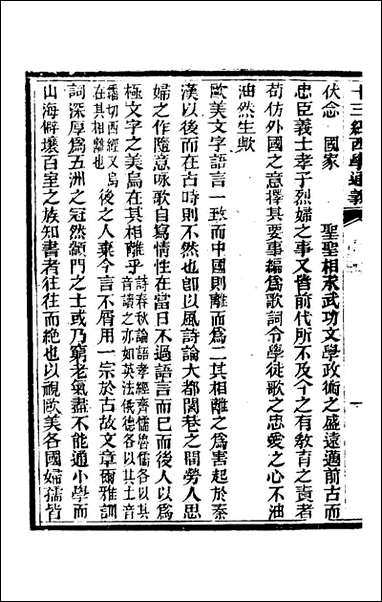 十三經西學通義
伏念　國家　　聖聖相承武功文學政術之盛遠邁前古而
忠臣義士孝子烈婦之事又皆前代所不及今之有敎育之責者
苟仿外國之意擇其要事編爲歌詞令學徒歌之忠愛之心不油
油然生歟
歐美文字語言一致而中國則離而爲二其相離之爲害起於秦
漢以後而在古時則不然也卽以風詩論大都閭巷之間勞人思
婦之作隨意咏歌自寫情性在當日不過語言而已而後人以爲
極文字之美烏在其相離乎詩春秋論語孝經齊儒魯儒各以其音讀之亦如英法俄德各以其土音
繙切西經又烏在其相離也後之人棄今言不屑用一宗於古故文章爾雅訓
詞深厚爲五洲之冠然顓門之士或乃窮老氣盡不能通小學而
山海僻壤百室之族知書者往往而絶也以視歐美各國婦孺皆